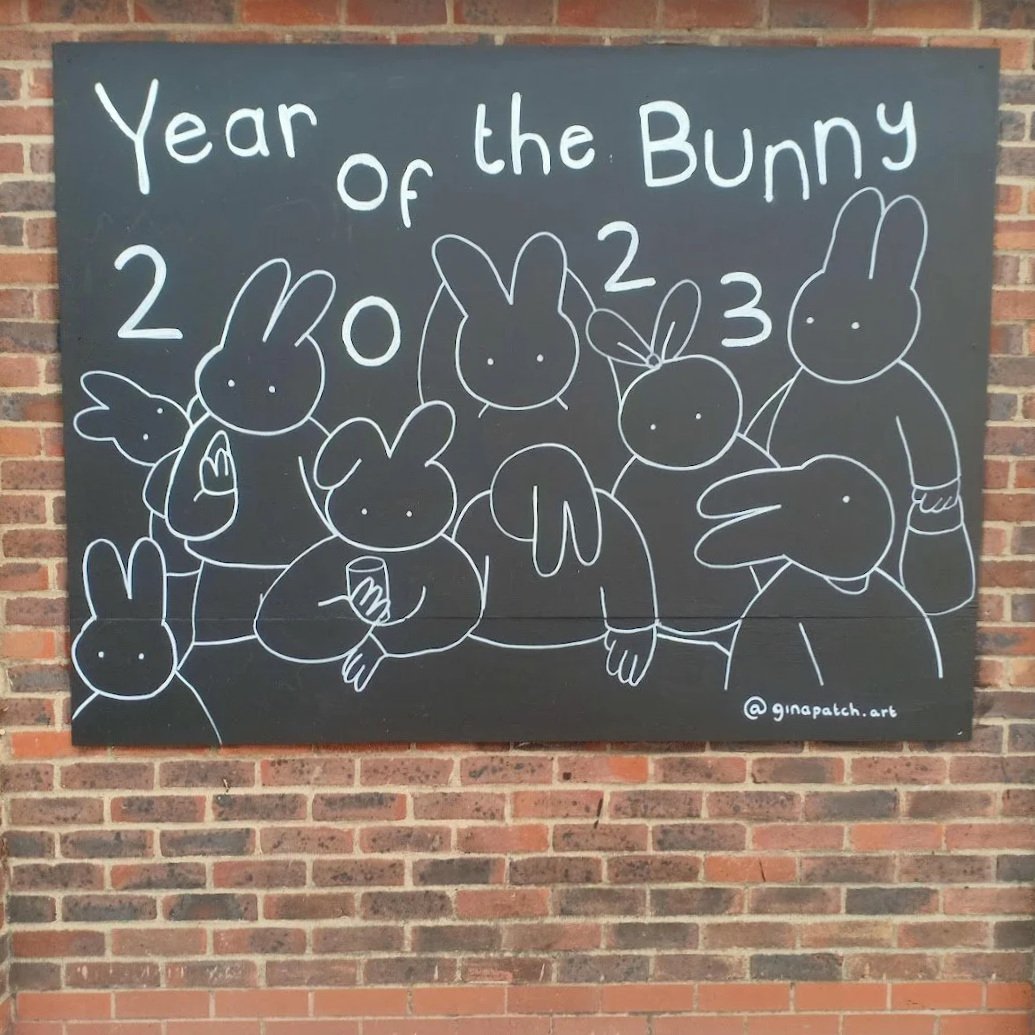 Year of the Bunny
2 0 2 3
@ginapatch.art